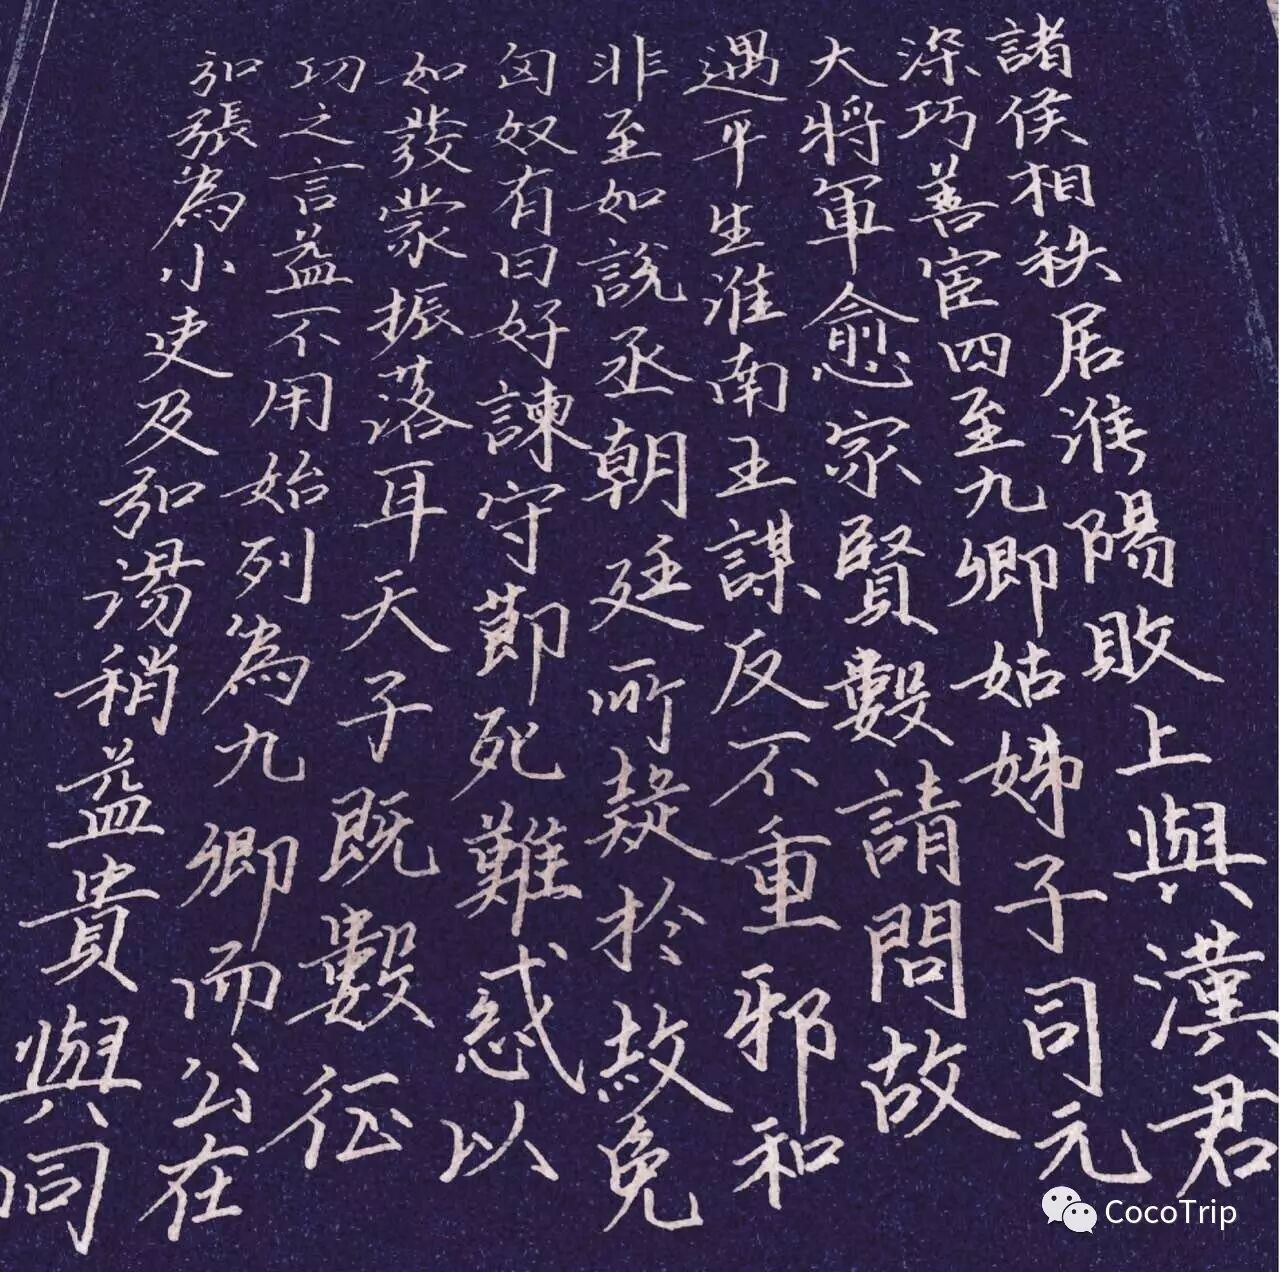 諸侯相秩居淮陽敗上與漢君
深巧善宦四至九卿姑姊子司元
大將軍愈家賢數請問故
遇平生淮南王謀反不重邪和
非至如說丞朝廷所疑於故免
匈奴有曰好諫守節死難惑以
如發蒙振落耳天子既數征
功之言益不用始列為九卿而公在
弘張為小吏及弘湯稍益貴與同
CocoTrip